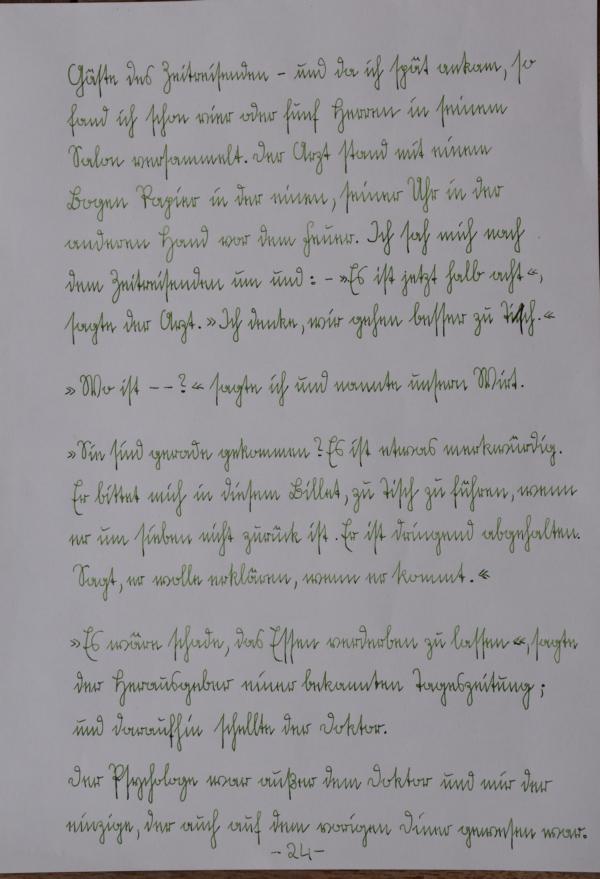 Gäste des Zeitreisenden – und da ich spät ankam, so
fand ich schon vier oder fünf Herren in seinem
Salon versammelt. Der Arzt stand mit einem
Bogen Papier in der einen, seiner Uhr in der
anderen Hand vor dem Feuer. Ich sah mich nach
dem Zeitreisenden um und: – »Es ist jetzt halb acht«,
sagte der Arzt. »Ich denke, wir gehen besser zu Tisch.«
»Wo ist – –?« sagte ich und nannte unsern Wirt.
»Sie sind gerade gekommen? Es ist etwas merkwürdig.
Er bittet mich in diesem Billet, zu Tisch zu führen, wenn
er um sieben nicht zurück ist. Er ist dringend abgehalten.
Sagt, er wolle erklären, wenn er kommt.«
»Es wäre schade, das Essen verderben zu lassen«, sagte
der Herausgeber einer bekannten Tageszeitung;
und daraufhin schellte der Doktor.
Der Psychologe war außer dem Doktor und mir der
einzige, der auch auf dem vorigen Diner gewesen war.
–24–